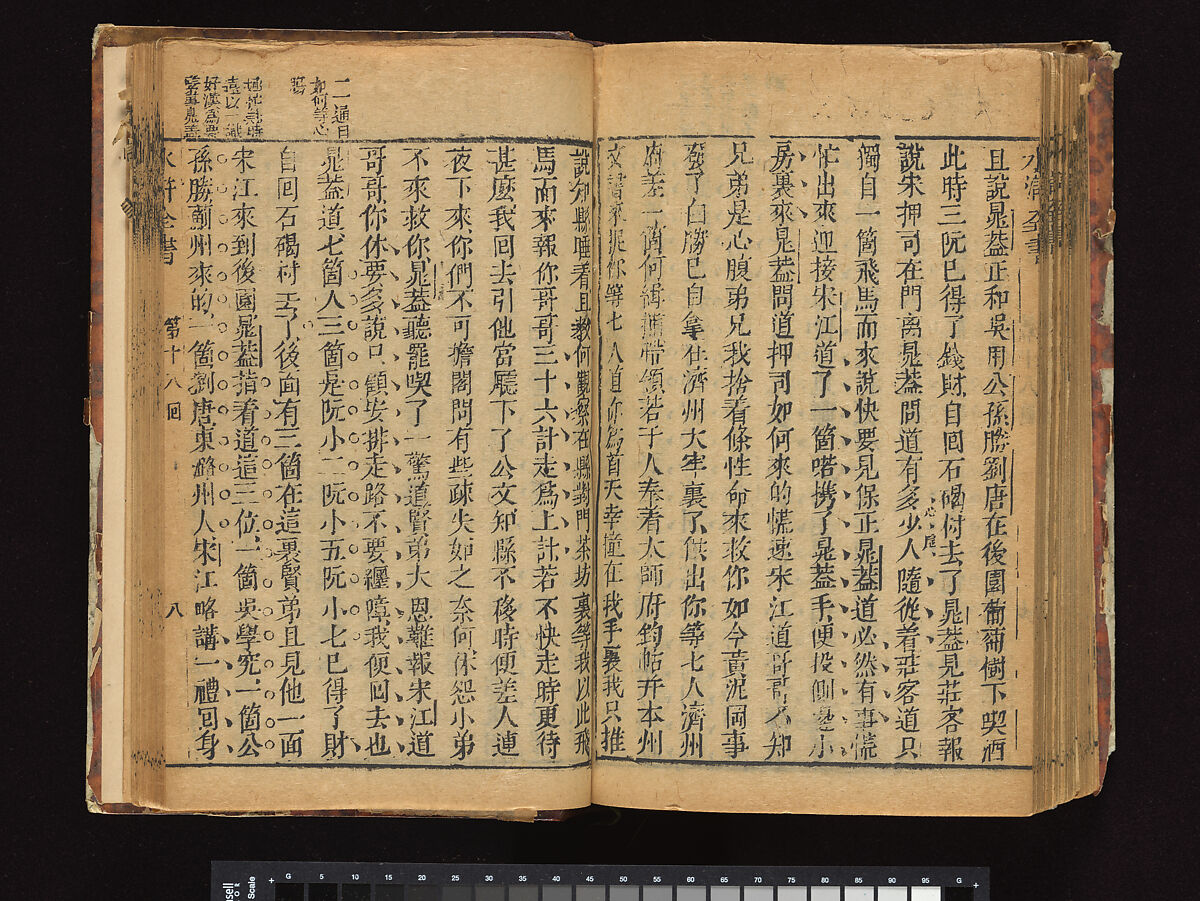 水滸全書
且說晁蓋正和吳用公孫勝劉唐在後園葡萄樹下喫酒
此時三阮已得了錢財自回石碣村去了晁蓋見莊客報
說宋押司在門晁蓋問道有多少人隨從着莊客道只
獨自一箇飛馬而來說快要見保正晁蓋道必然有事慌
忙出來迎接宋江道了一箇喏携了晁蓋手便投側邊小
房裏來晁蓋問道押司如何來的慌速宋江道哥哥不知
兄弟是心腹弟兄我捨着條性命來救你如今黃泥岡事
發了白勝已自拿在濟州大牢裏了供出你等七人濟州
府差一箇何緝捕帶領若干人奉着太師府鈞帖并本州
文書來捉你等七人道你爲首天幸撞在我手裏我只推
說知縣睡着且教何觀察在縣對門茶坊裏等我以此飛
馬而來報你哥哥三十六計走爲上計若不快走時更待
甚麽我回去引他當廳下了公文知縣不移時便差人連
夜下來你們不可擔閣有些疎失如之奈何休怨小弟
不來救你晁蓋聽罷喫了一驚道賢弟大恩難報宋江道
哥哥你休要多說只顧安排走路不要纏障我便回去也
晁蓋道七箇人三箇是阮小二阮小五阮小七已得了財
自回石碣村去了後面有三箇在這裏賢弟且見他一面
宋江來到後園晁蓋指着道這三位一箇吳學究一箇公
孫勝薊州來的一箇劉唐東潞州人宋江略講一禮回身
如何等心
腸
好漢爲要
水滸全書 第十八回 八